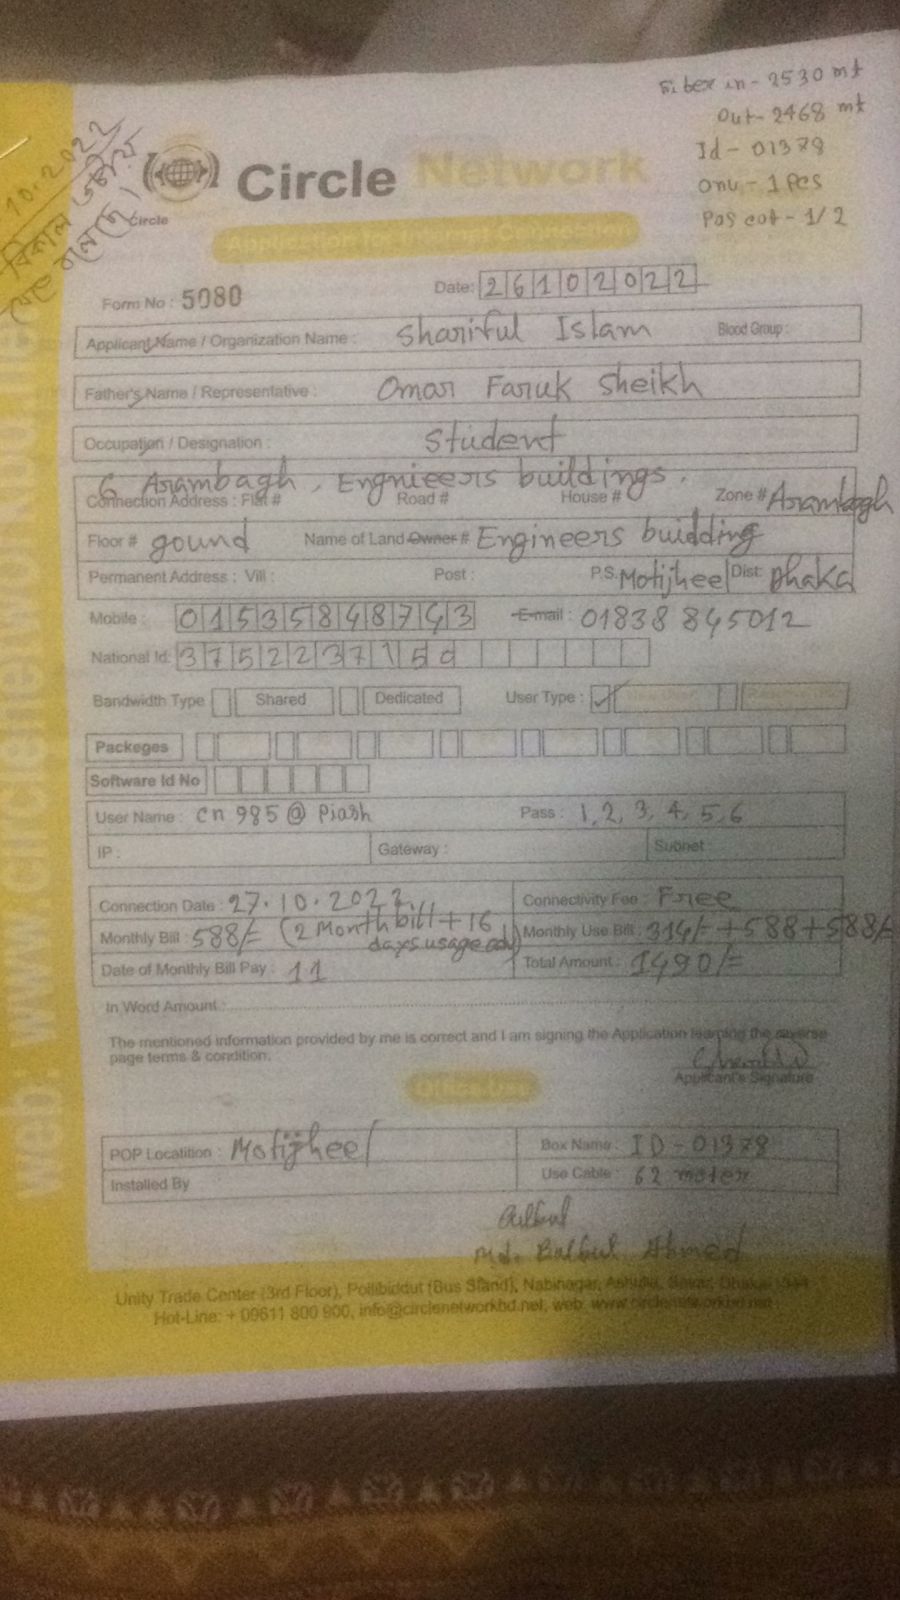 Fiber in - 2530 mt
Out - 2468 mt
Id - 01378
onu - 1 Pcs
Pas cot - 1/2
10.2022
বিকাল
Circle
Circle Network
Application for Internet Connection
Form No : 5080
Date: 26102022
Applicant Name / Organization Name : Shariful Islam Blood Group :
Father's Name / Representative : Omar Faruk Sheikh
Occupation / Designation : Student
6 Arambagh, Engnieers buildings.
Connection Address : Flat # Road # House # Zone # Arambagh
Floor # gound Name of Land Owner # Engineers buidding
Permanent Address : Vill : Post : P.S. Motijheel Dist: Dhaka
Mobile : 01535848743 E-mail : 01838845012
National Id: 3752237150
Bandwidth Type Shared Dedicated User Type :
Packeges
Software Id No
User Name : cn 985 @ Piash Pass : 1,2,3,4,5,6
IP : Gateway : Subnet
Connection Date : 27.10.2022 Connectivity Fee : Free
Monthly Bill : 588/= (2 Month bill + 16 days usage Monthly Use Bill : 314/= + 588 + 588/=
Date of Monthly Bill Pay : 11 Total Amount : 1490/=
In Word Amount :
The mentioned information provided by me is correct and I am signing the Application learning the reverse
page terms & condition.
Applicant's Signature
Office Use
POP Locatition : Motijheel Box Name : ID - 01378
Installed By Use Cable : 62 moter
Md. Balbul Ahmed
Unity Trade Center (3rd Floor), Pollibiddut (Bus Stand), Nabinagar, Ashulia, Savar, Dhaka
Hot-Line: + 09611 800 900, info@circlenetworkbd.net, web: www.circlenetworkbd.net
web: www.circlenetworkbd.net